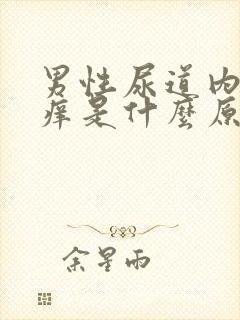 男性尿道内
痒是什麼原
余星雨